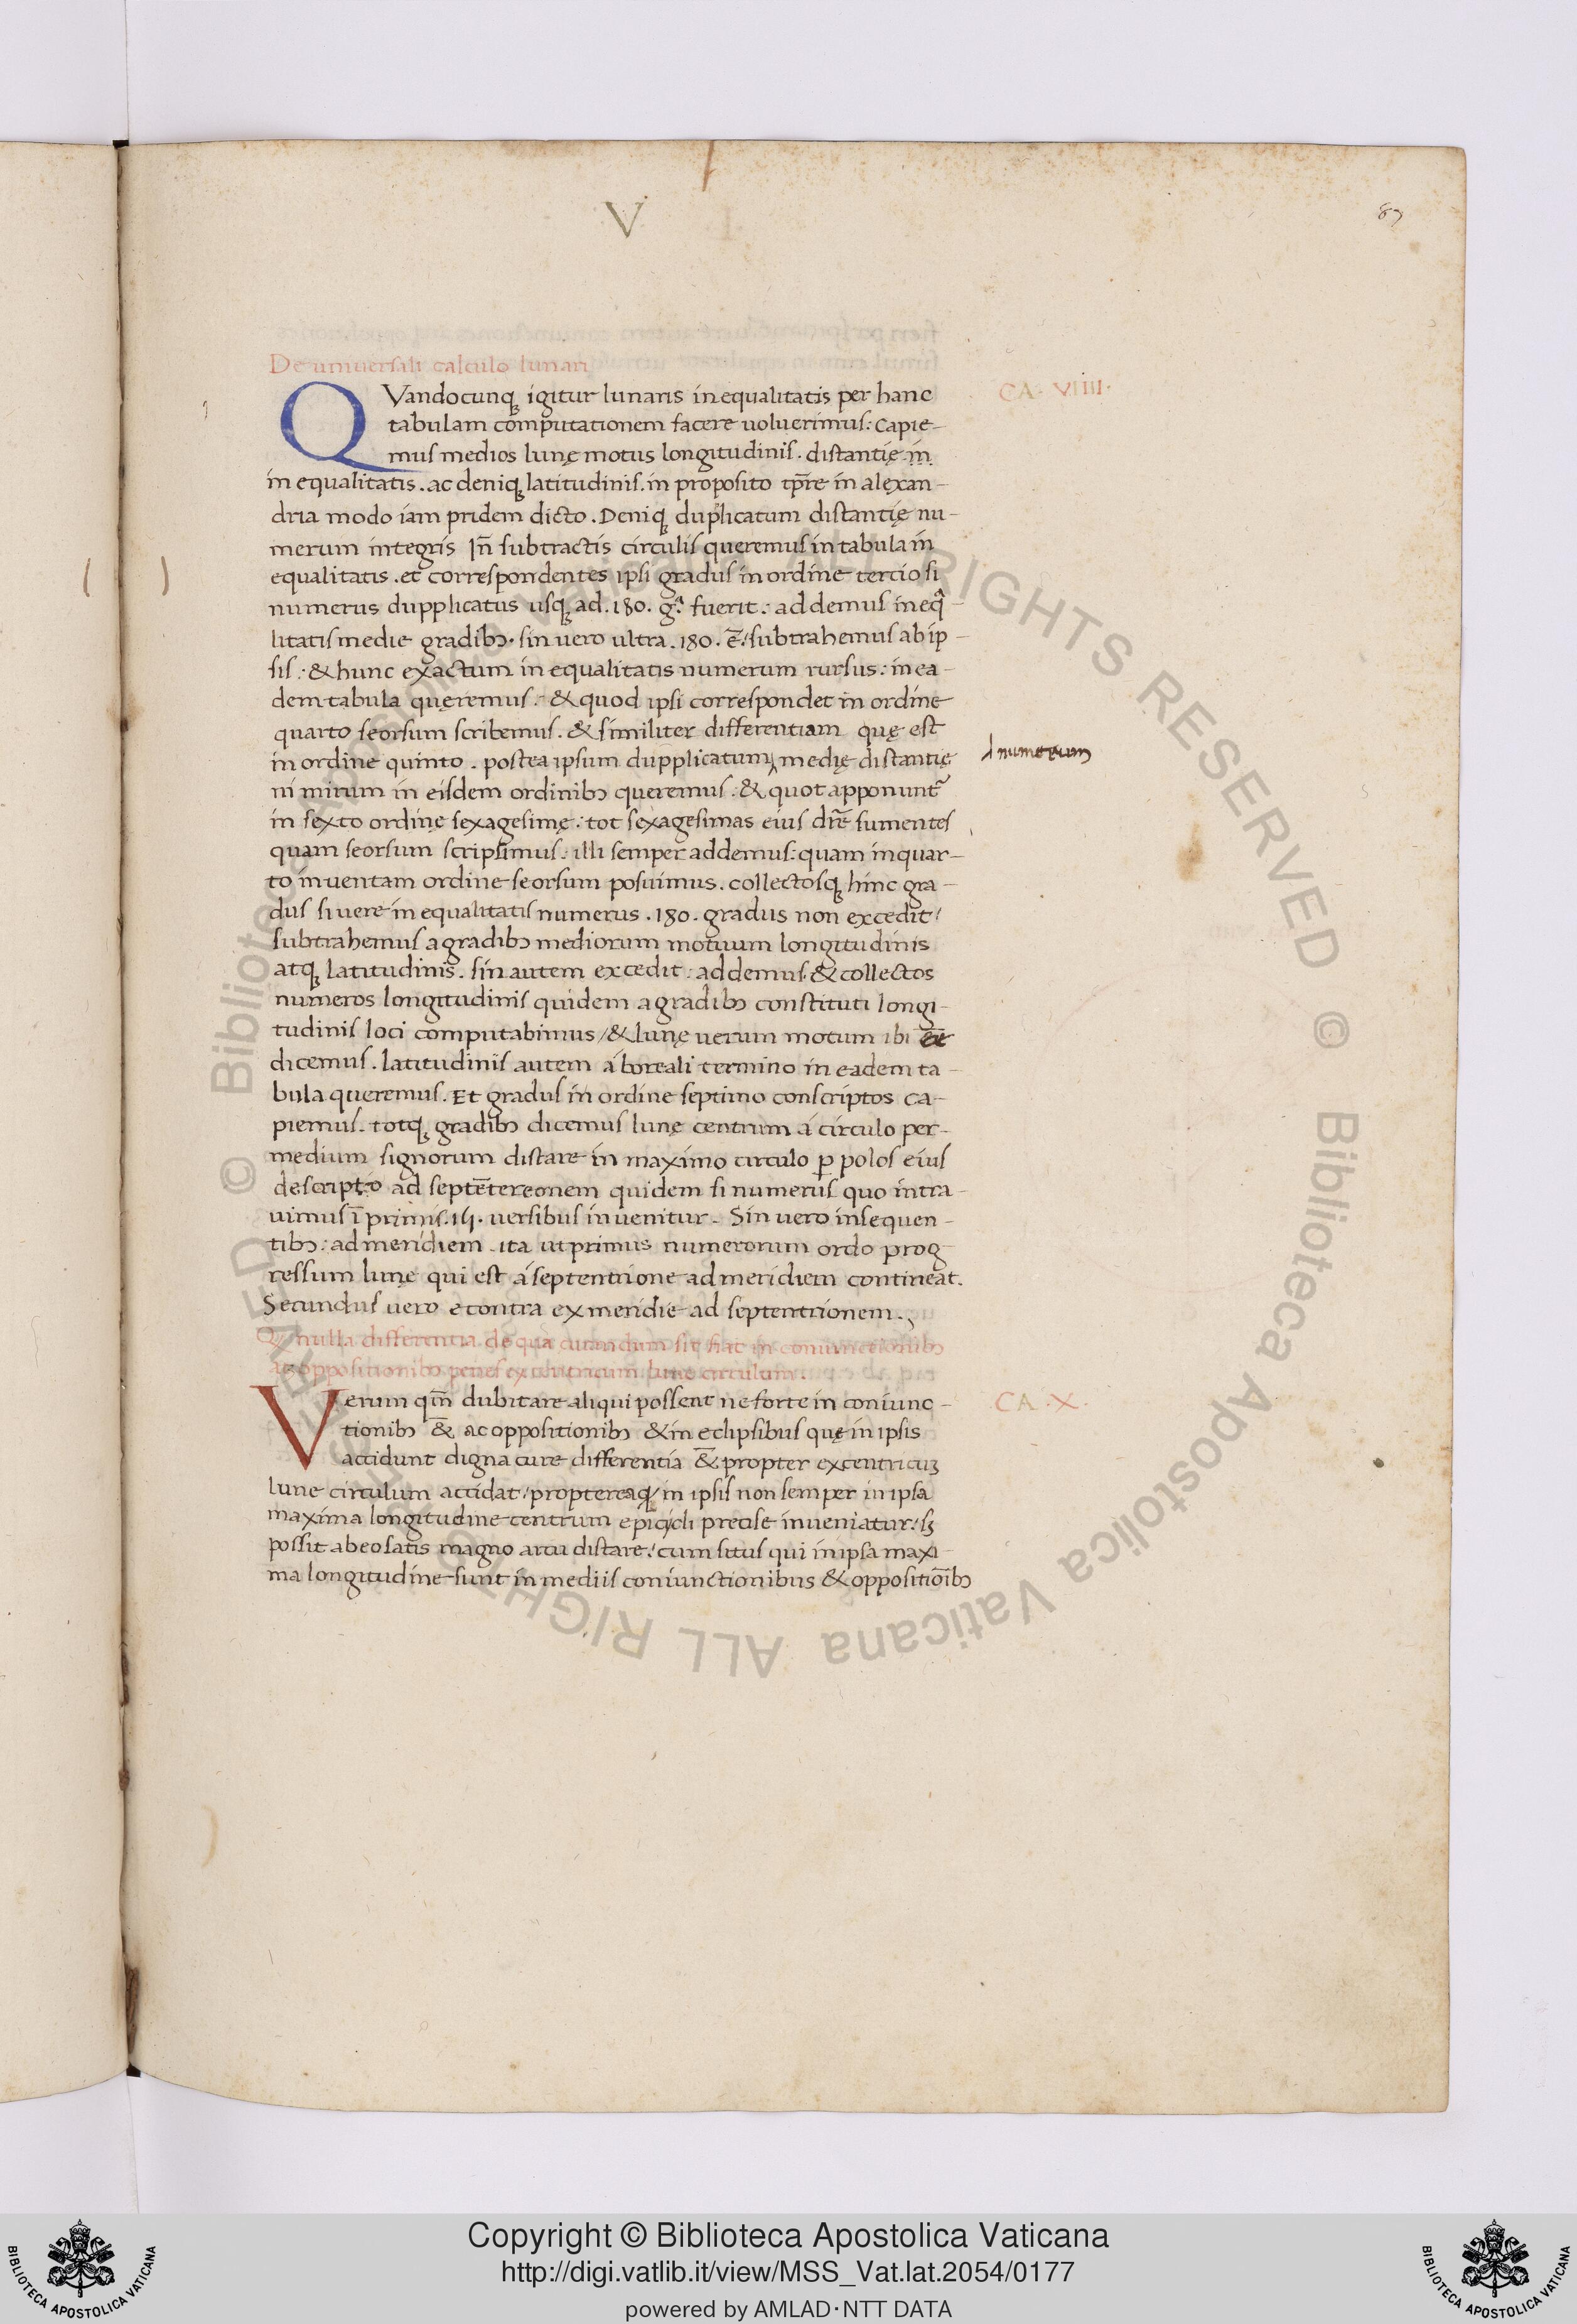 V
87
De universali calculo lunari
CA. VIIII.
QVandocunqꝫ igitur lunaris inequalitatis per hanc
tabulam computationem facere uoluerimus: capie-
mus medios lunę motus longitudinis. distantię in
inequalitatis. ac deniqꝫ latitudinis. in proposito tp̄re in alexan-
dria modo iam pridem dicto. Deniqꝫ duplicatum distantię nu-
merum integris In̄ subtractis circulis queremus in tabula in
equalitatis. et correspondentes ipsi gradus in ordine tercio si
numerus dupplicatus usqꝫ ad .180. gᵃ. fuerit: addemus ineq̄-
litatis medie gradibꝫ. sin uero ultra .180. ē: subtrahemus ab ip-
sis: & hunc exactum inequalitatis numerum rursus: in ea-
dem tabula queremus: & quod ipsi correspondet in ordine
quarto seorsum scribemus. & similiter differentiam quę est
in ordine quinto. postea ipsum dupplicatum medię distantię
numerum
ni mirum in eisdem ordinibꝫ queremus: & quot apponunt᷑
in sexto ordine sexagesimę: tot sexagesimas eius dr̄e sumentes
quam seorsum scripsimus: illi semper addemus: quam in quar-
to inuentam ordine seorsum posuimus. collectosqꝫ hinc gra-
dus si uere inequalitatis numerus .180. gradus non excedit/
subtrahemus a gradibꝫ mediorum motuum longitudinis
atqꝫ latitudinis. sin autem excedit: addemus. & collectos
numeros longitudinis quidem a gradibꝫ constituti longi-
tudinis loci computabimus/ & lunę uerum motum ibi ēē
dicemus. latitudinis autem á boreali termino in eadem ta-
bula queremus. Et gradus in ordine septimo conscriptos ca-
piemus. totqꝫ gradibꝫ dicemus lunę centrum á circulo per-
medium signorum distare in maximo circulo ꝑ polos eius
descripto ad septētereonem quidem si numerus quo intra-
uimus ī primis .15. uersibus inuenitur. Sin uero insequen-
tibꝫ: ad meridiem. ita ut primus numerorum ordo prog-
ressum lunę qui est á septentrione ad meridiem contineat.
Secundus uero e contra ex meridie ad septentrionem.
Q nulla differentia de qua curandum sit fiat in coniunctionibꝫ
ac oppositionibꝫ penes excentricum lune circulum.
CA. X.
Verum qm̄ dubitare aliqui possent ne forte in coniunc-
tionibꝫ & ac oppositionibꝫ & in eclipsibus quę in ipsis
accidunt digna cure differentia & propter excentricuꝫ
lune circulum accidat/ proptereaqꝫ/ in ipsis non semper in ipsa
maxima longitudine centrum epicicli precise inueniatur: sꝫ
possit ab eo satis magno arcu distare: cum situs qui in ipsa maxi-
ma longitudine sunt in mediis coniunctionibus & oppositiōibꝫ
Copyright © Biblioteca Apostolica Vaticana
http://digi.vatlib.it/view/MSS_Vat.lat.2054/0177
powered by AMLAD·NTT DATA
BIBLIOTECA APOSTOLICA VATICANA
BIBLIOTECA APOSTOLICA VATICANA
© Biblioteca Apostolica Vaticana ALL RIGHTS RESERVED
© Biblioteca Apostolica Vaticana ALL RIGHTS RESERVED